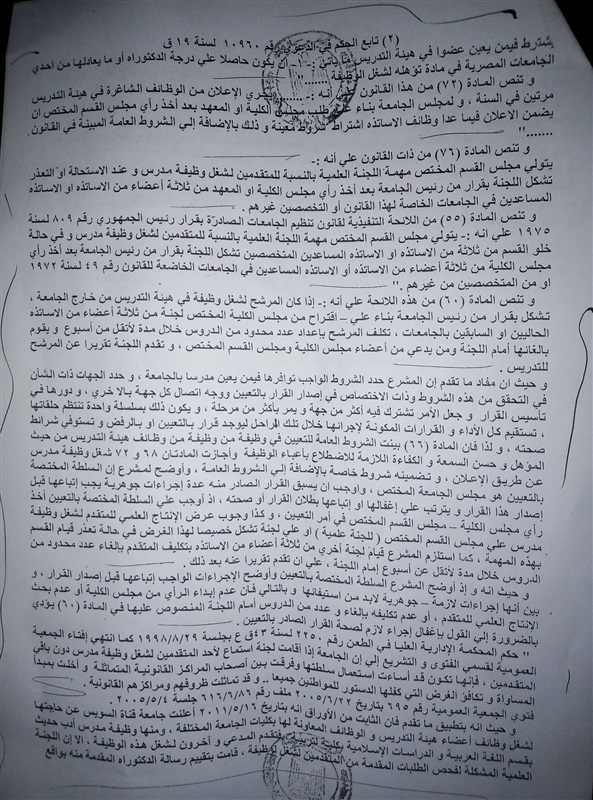 (٢) تابع الحكم في الدعوى رقم ١٠٩٦٠ لسنة ١٩ ق
يشترط فيمن يعين عضوا في هيئة التدريس ما يأتي :- ١- ان يكون حاصلا علي درجة الدكتوراه أو ما يعادلها من احدي
الجامعات المصرية في مادة تؤهله لشغل الوظيفة
و تنص المادة (٧٢) من هذا القانون علي أنه :- يجري الإعلان عن الوظائف الشاغرة في هيئة التدريس
مرتين في السنة ، و لمجلس الجامعة بناء علي طلب مجلس الكلية او المعهد بعد أخذ رأي مجلس القسم المختص ان
يضمن الاعلان فيما عدا وظائف الاساتذه اشتراط شروط معينة و ذلك بالإضافة إلي الشروط العامة المبينة في القانون.
"........
و تنص المادة (٧٦) من ذات القانون علي أنه :-
يتولي مجلس القسم المختص مهمة اللجنة العلمية بالنسبة للمتقدمين لشغل وظيفة مدرس و عند الاستحالة او التعذر
تشكل اللجنة بقرار من رئيس الجامعة بعد أخذ رأي مجلس الكلية او المعهد من ثلاثة أعضاء من الاساتذه او الاساتذه
المساعدين في الجامعات الخاصة لهذا القانون أو التخصصين غيرهم .
و تنص المادة (٥٥) من اللائحة التنفيذية لقانون تنظيم الجامعات الصادرة بقرار رئيس الجمهوري رقم ٨٠٩ لسنة
١٩٧٥ علي انه :- يتولي مجلس القسم المختص مهمة اللجنة العلمية بالنسبة للمتقدمين لشغل وظيفة مدرس و في حالة
خلو القسم من ثلاثة من الاساتذه او الاساتذه المساعدين المتخصصين تشكل اللجنة بقرار من رئيس الجامعة بعد أخذ رأي
مجلس الكلية من ثلاثة أعضاء من الاساتذه أو الاساتذه المساعدين في الجامعات الخاضعة للقانون رقم ٤٩ لسنة ١٩٧٢
او من المتخصصين من غيرهم ."
و تنص المادة (٦٠) من هذه اللائحة علي أنه :- إذا كان المرشح لشغل وظيفة في هيئة التدريس من خارج الجامعة ،
تشكل بقرار من رئيس الجامعة بناء علي – اقتراح من مجلس الكلية المختص لجنة من ثلاثة أعضاء من الاساتذه
الحاليين او السابقين بالجامعات ، تكلف المرشح بإعداد عدد محدود من الدروس خلال مدة لأتقل من أسبوع و يقوم
بالغائها أمام اللجنة ومن يدعي من أعضاء مجلس الكلية ومجلس القسم المختص ، و تقدم اللجنة تقريرا عن المرشح
للتدريس .
و حيث ان مفاد ما تقدم إن المشرع حدد الشروط الواجب توافرها فيمن يعين مدرسا بالجامعة ، و حدد الجهات ذات الشأن
في التحقق من هذه الشروط وذات الاختصاص في إصدار القرار بالتعيين ووجه اتصال كل جهة بالاخري ، و دورها في
تأسيس القرار و جعل الأمر تشترك فيه أكثر من جهة و يمر بأكثر من مرحلة ، و يكون ذلك بسلسلة واحدة تنتظم حلقاتها
، تستقيم كل الأداء و القرارات المكونة لإجرائها خلال تلك المراحل ليوجد قرار بالتعيين او بالرفض و تستوفي شرائط
صحته ، و لذا فان المادة (٦٦) بينت الشروط العامة للتعيين في وظيفة من وظائف هيئة التدريس من حيث
المؤهل و حسن السمعة و الكفاءة اللازمة للاضطلاع بأعباء الوظيفة وأجازت المادتان ٦٨ و ٧٢ شغل وظيفة مدرس
عن طريق الإعلان ، و تضمينه شروط خاصة بالإضافة إلي الشروط العامة ، وأوضح لمشرع إن السلطة المختصة
بالتعيين هو مجلس الجامعة المختص ، واوجب ان يسبق القرار الصادر منه عدة إجراءات جوهرية يجب إتباعها قبل
إصدار هذا القرار و يترتب علي إغفالها او إتباعها بطلان القرار أو صحته ، اذ أوجب علي السلطة المختصة بالتعيين أخذ
رأي مجلس الكلية – مجلس القسم المختص في أمر التعيين ، و كذا وجوب عرض الإنتاج العلمي للمتقدم لشغل وظيفة
مدرس علي مجلس القسم المختص ( للجنة علمية ) او علي لجنة تشكل خصيصا لهذا الغرض في حالة تعذر قيام القسم
بهذه المهمة ، كما استلزم المشرع قيام لجنة أخري من ثلاثة أعضاء من الاساتذه بتكليف المتقدم بالغاء عدد محدود من
الدروس خلال مدة لأتقل عن أسبوع إمام اللجنة ، علي ان تقدم تقريرا عنه بعد ذلك .
و حيث انه و إذ أوضح المشرع السلطة المختصة بالتعيين وأوضح الإجراءات الواجب إتباعها قبل إصدار القرار ، و
بين أنها إجراءات لازمة – جوهرية لابد من استيفائها و بالتالي فان عدم إبداء الرأي من مجلس الكلية أو عدم بحث
الإنتاج العلمي للمتقدم ، أو عدم تكليفه بالغاء و عدد من الدروس أمام اللجنة المنصوص عليها في المادة (٦٠) يؤدي
بالضرورة إلي القول بإغفال إجراء لازم لصحة القرار الصادر بالتعيين .
" حكم المحكمة الإدارية العليا في الطعن رقم ٢٢٥٠ لسنة ٤٣ق ع بجلسة ١٩٩٨/٨/٢٩ كما انتهي إفتاء الجمعية
العمومية لقسمي الفتوي و التشريع إلي إن الجامعة إذا أقامت لجنة استماع لأحد المتقدمين لشغل وظيفة مدرس دون باقي
المتقدمين ، فإنها تكون قد أساءت استعمال سلطتها وفرقت بين أصحاب المراكز القانونية المتماثلة و أخلت بمبدأ
المساواة و تكافؤ الغرض التي كفلها الدستور للمواطنين جميعا .. و قد تماثلت ظروفهم ومراكزهم القانونية .
فتوي الجمعية العمومية رقم ٦٩٥ بتاريخ ٢٠٠٥/٦/٢٢ ملف رقم ٦١٦/٦/٨٦ جلسة ٢٠٠٥/٥/٤ .
و حيث انه بتطبيق ما تقدم فان الثابت من الأوراق انه بتاريخ ٢٠١١/٥/١٦ أعلنت جامعة قناة السويس عن حاجتها
لشغل وظائف أعضاء هيئة التدريس و الوظائف المعاونة لها بكليات الجامعة المختلفة ، ومنها وظيفة مدرس أدب حديث
بقسم اللغة العربية و الدراسات الإسلامية بكلية التربية ، فتقدم المدعي و آخرون لشغل هذه الوظيفة ، الا إن اللجنة
العلمية المشكلة لفحص الطلبات المقدمة من المتقدمين لشغل الوظيفة ، قامت بتقييم رسالة الدكتوراه المقدمة منه بواقع